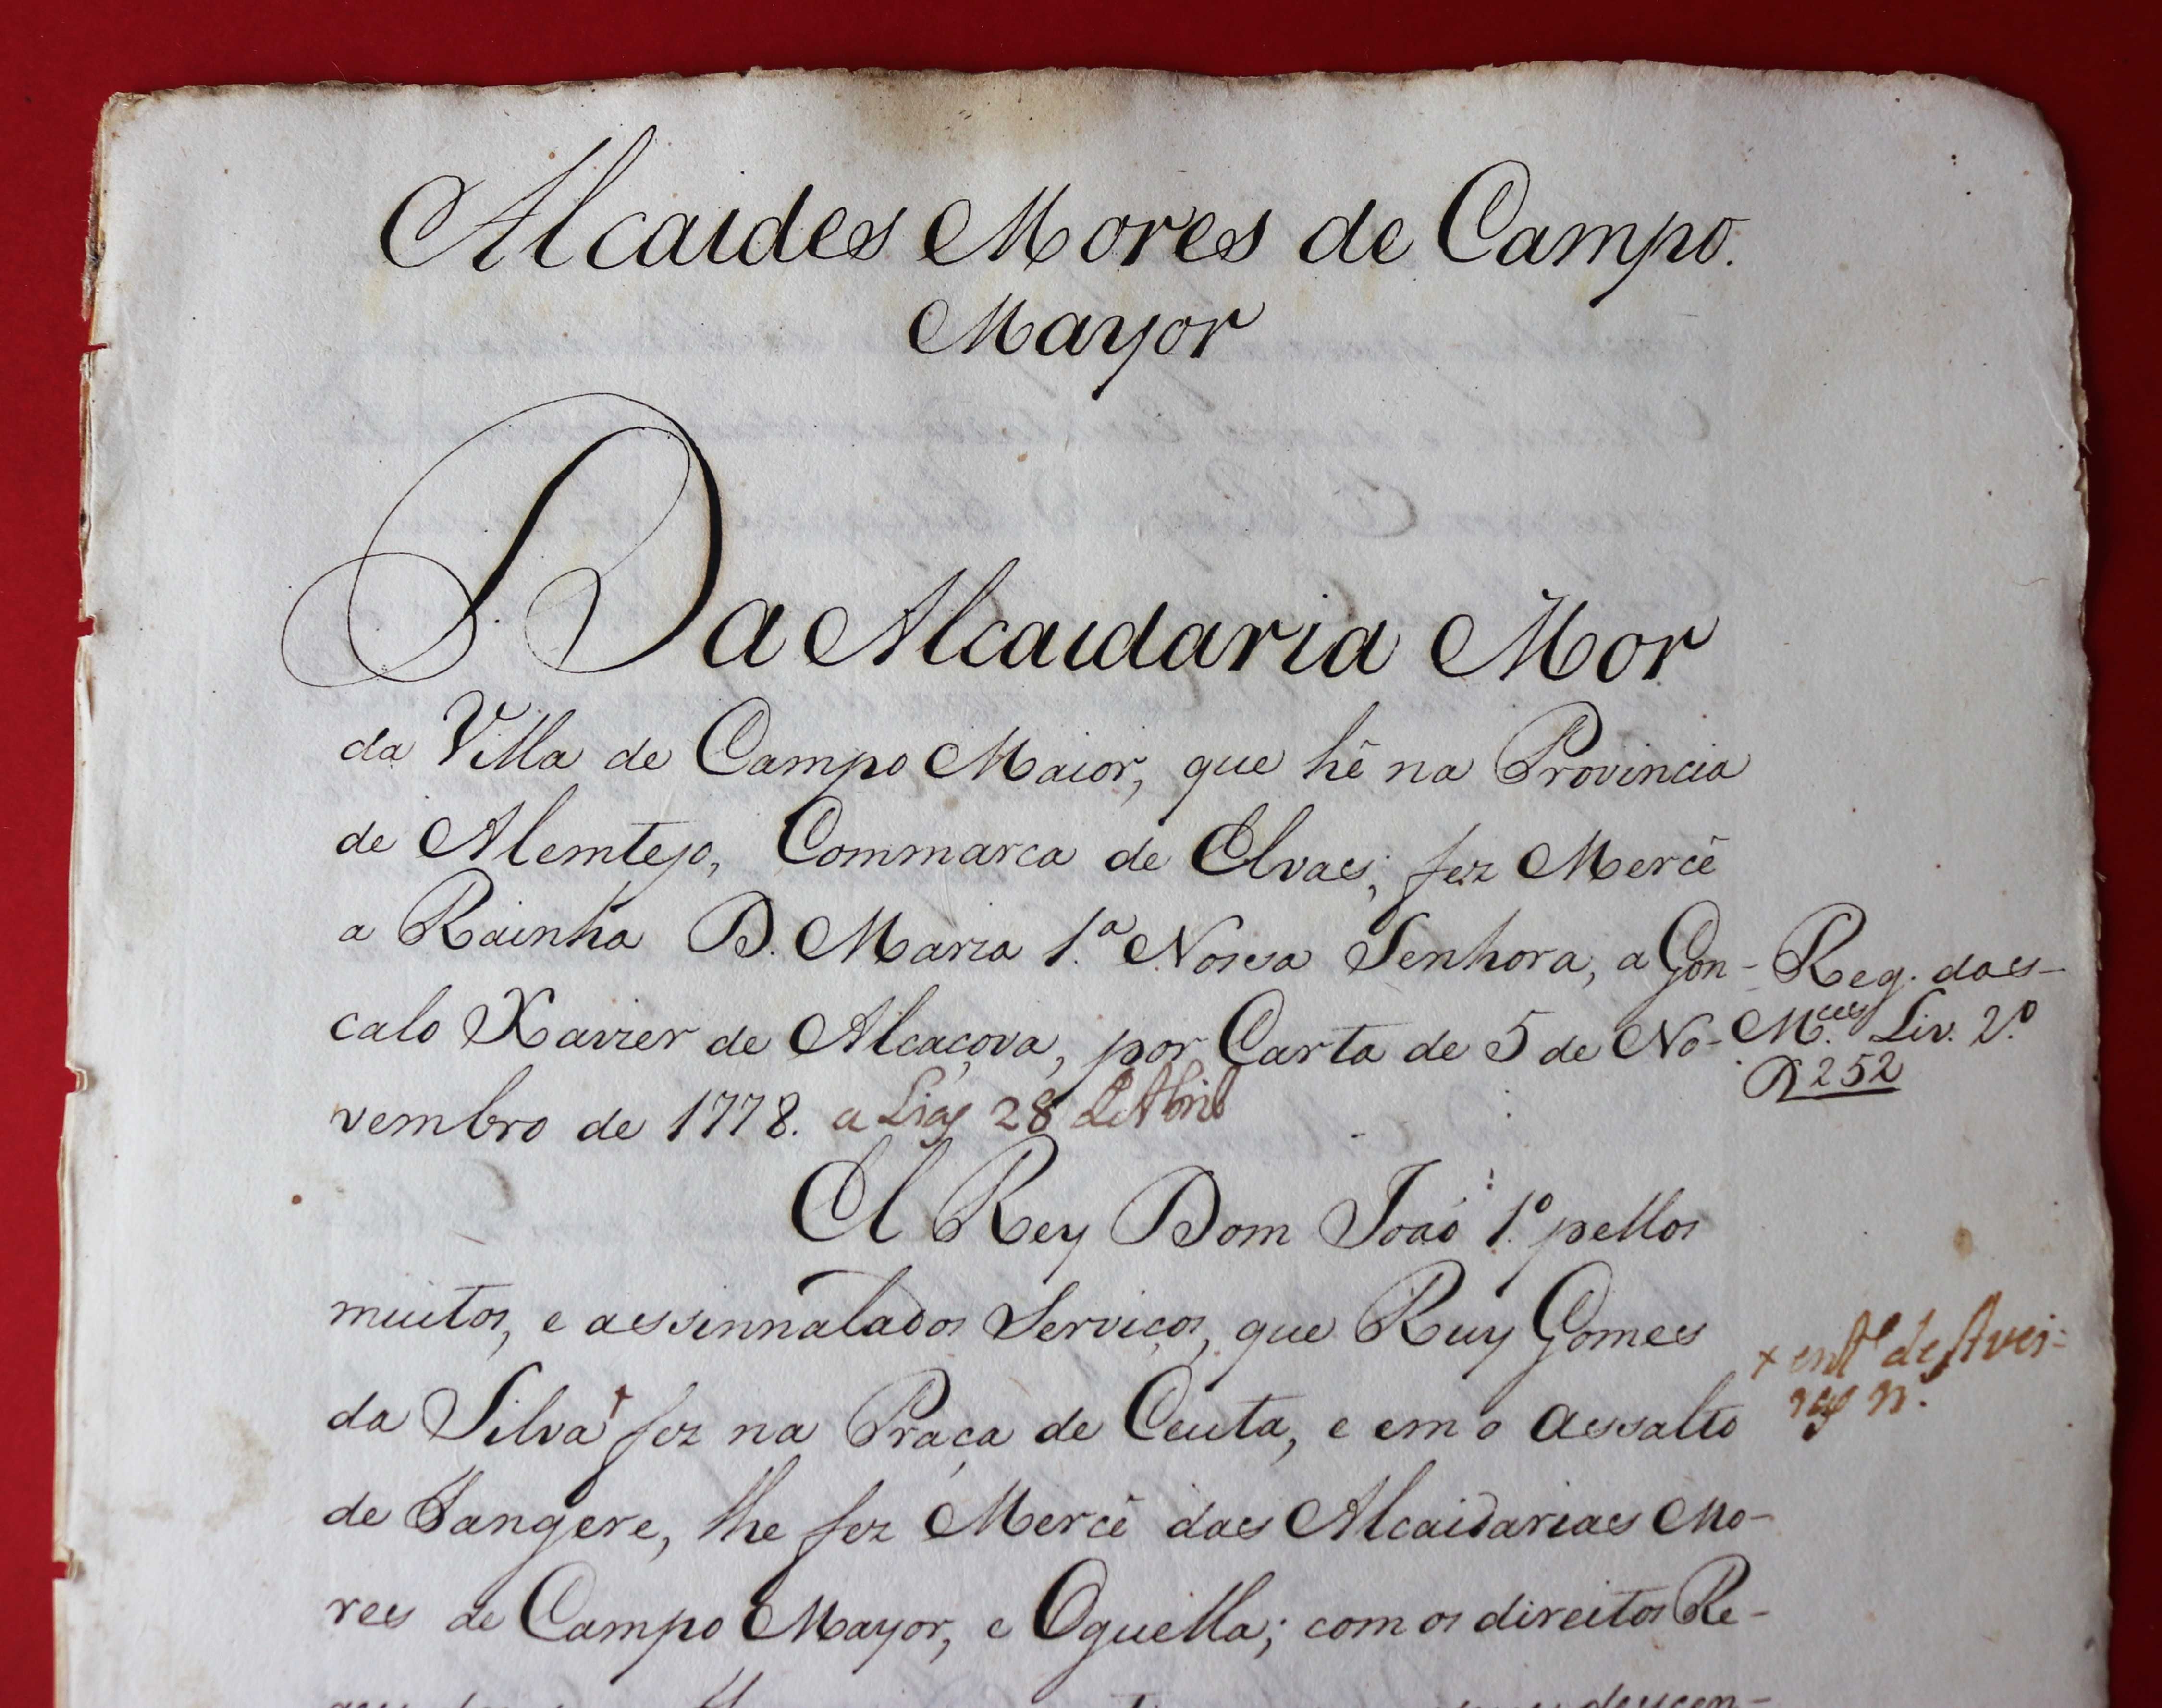 Alcaides Mores de Campo.
Mayor
Da Alcaidaria Mor
da Villa de Campo Maior, que hê na Provincia
de Alemtejo, Commarca de Elvas; fez Mercê
a Rainha D. Maria 1.ª Nossa Senhora, a Gon-
calo Xavier de Alcaçova, por Carta de 5 de No-
vembro de 1778. a 28 de Abril
Reg. das
M.ces Liv. 2.º
252
El Rey Dom João 1.º pellos
muitos, e assinnalados Serviços, que Ruy Gomes
da Silva fez na Praça de Ceuta, e em o assalto
de Tangere, lhe fez Mercê das Alcaidarias Mo-
res de Campo Mayor, e Oguella; com os direitos Re-
descen-